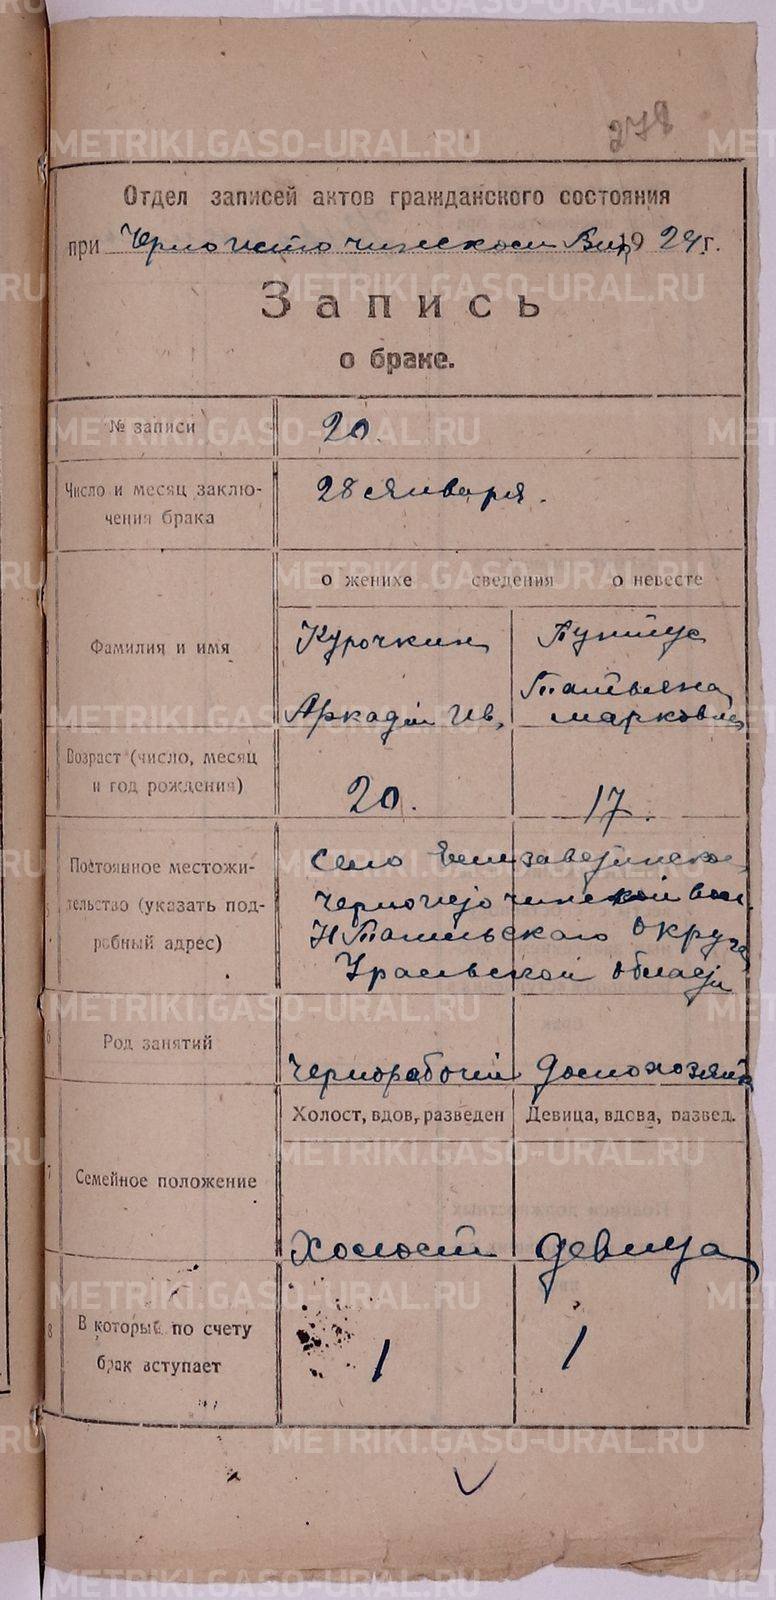 278
Отдел записей актов гражданского состояния
при Черноисточинском Вик 1924 г.
Запись
о браке.
№ записи 20.
Число и месяц заклю-
чения брака 28 Января.
о женихе сведения о невесте
3 Фамилия и имя
Курочкин
Аркадий Ив,
Татьяна
Марковна
Возраст (число, месяц
и год рождения) 20. 17.
Постоянное местожи-
тельство (указать под-
робный адрес)
Село Елизаветинское
Черноисточинской вол.
Н Тагильского Округа
Уральской области
6 Род занятий Чернорабочий Домохозяйка
Холост, вдов, разведен Девица, вдова, развед.
7 Семейное положение Холост девица
8 В который по счету
брак вступает 1 1
METRIKI.GASO-URAL.RU